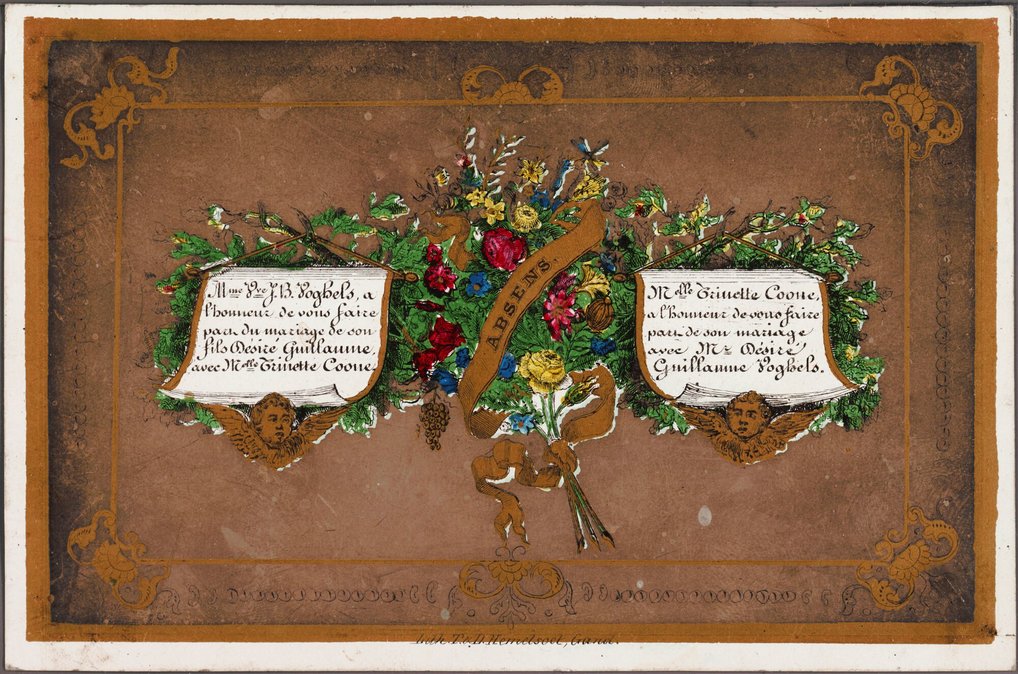 Mme Vve J. B. Voghels, a
l'honneur de vous faire
part du mariage de son
fils Désiré Guillaume,
avec Melle Trinette Coone.
ABSENS.
Melle Trinette Coone,
a l'honneur de vous faire
part de son mariage
avec Mr Désiré
Guillaume Voghels.
Lith. T. & D. Hemelsoet, Gand.